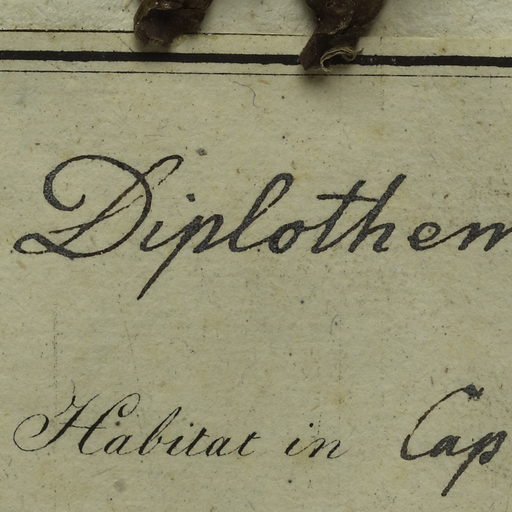 Diplothem
Habitat in Cap